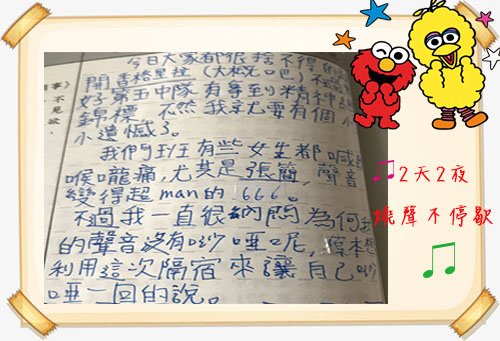 今日大家都很捨不得的
開香格里拉(大概吧)不
好第五中隊有奪到精神
錦標,不然我就要有個小
小遺憾了。
我們班有些女生都喊
喉嚨痛,尤其是張簡,聲音
變得超man的1666。
不過我一直很納悶為何我
的聲音沒有吵啞呢,原本想
利用這次隔宿來讓自己吵
啞一回的說。
事)
不
見
欲
2天2夜
燒聲不停歇